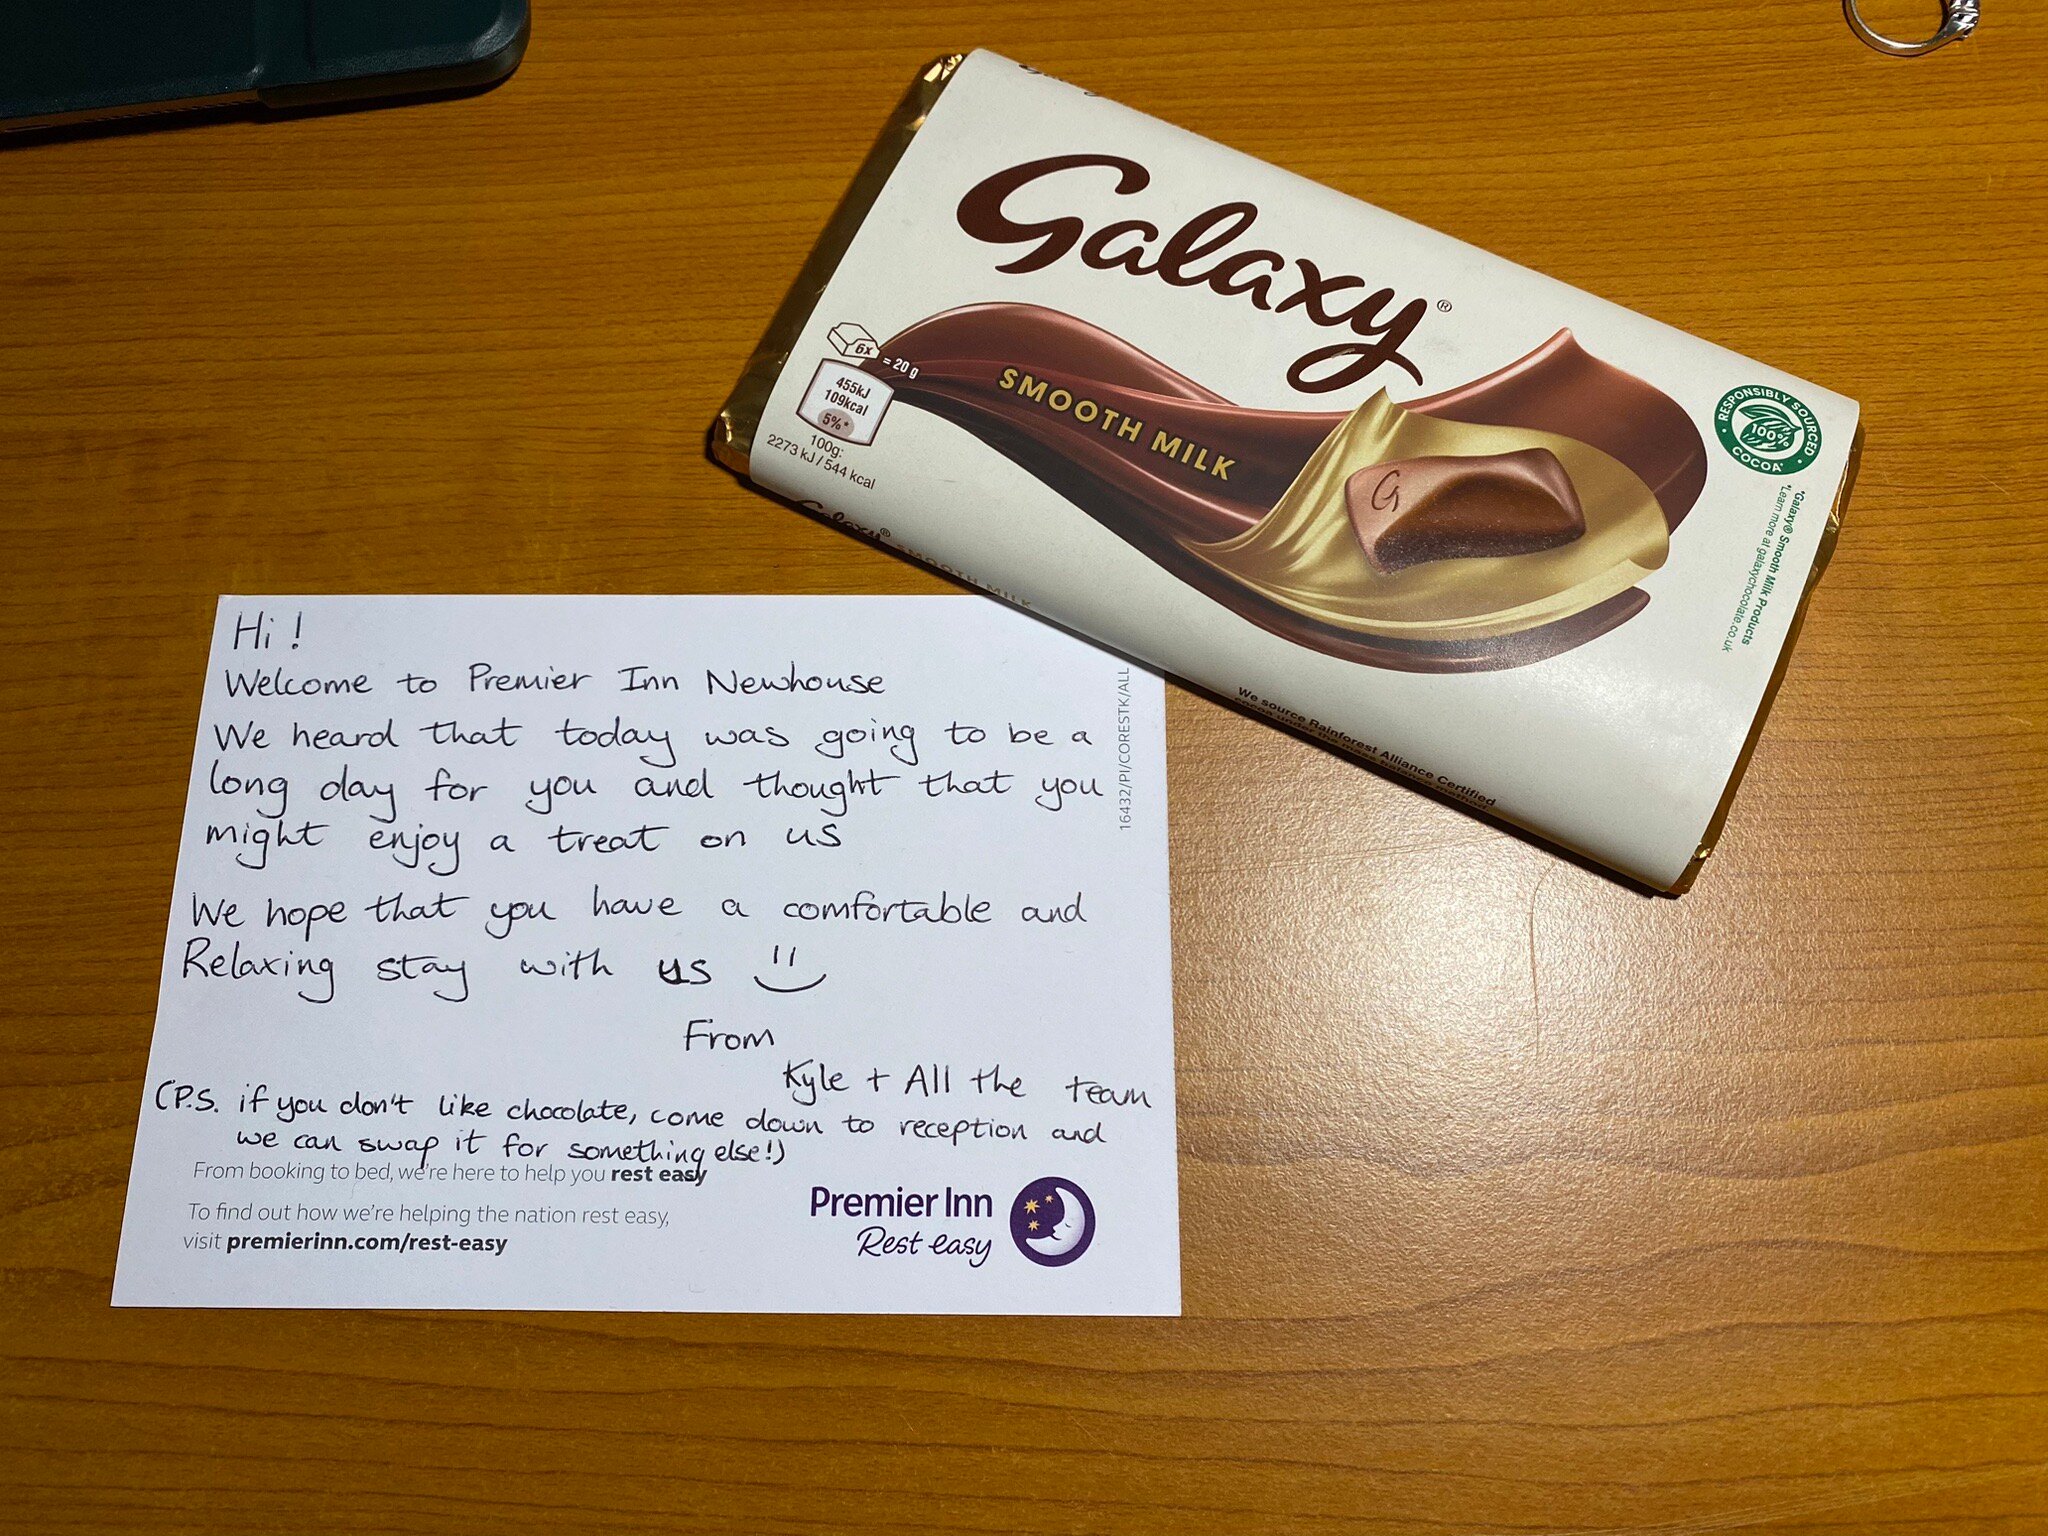 Galaxy®
SMOOTH MILK
6x = 20 g
455kJ
109kcal
5%*
100g:
2273 kJ / 544 kcal
RESPONSIBLY SOURCED
100%
COCOA*
*Galaxy® Smooth Milk Products
*Learn more at galaxychocolate.co.uk
G
Galaxy®
SMOOTH MILK
We source Rainforest Alliance Certified
cocoa under the mass balance method
Hi!
Welcome to Premier Inn Newhouse
We heard that today was going to be a
long day for you and thought that you
might enjoy a treat on us
We hope that you have a comfortable and
Relaxing stay with us
From
Kyle + All the team
(P.S. if you don't like chocolate, come down to reception and
we can swap it for something else!)
From booking to bed, we're here to help you rest easy
To find out how we're helping the nation rest easy,
visit premierinn.com/rest-easy
Premier Inn
Rest easy
16432/PI/CORESTK/ALL